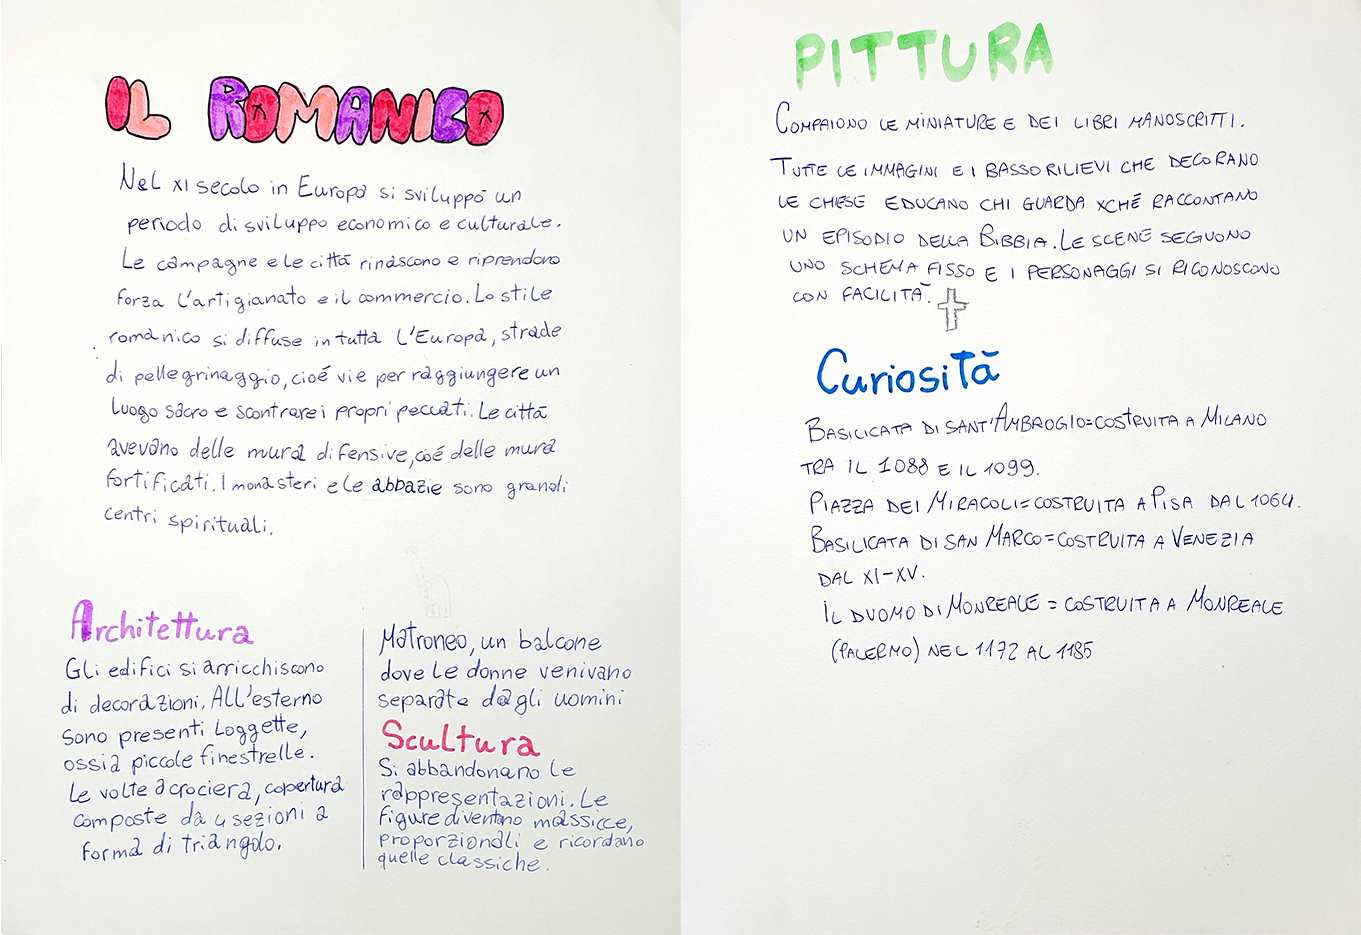 IL ROMANICO
Nel XI secolo in Europa si sviluppò un
periodo di sviluppo economico e culturale.
Le campagne e le città rinascono e riprendono
forza l'artigianato e il commercio. Lo stile
romanico si diffuse in tutta l'Europa, strade
di pellegrinaggio, cioé vie per raggiungere un
luogo sacro e scontrare i propri peccati. Le città
avevano delle mura difensive, cioé delle mura
fortificati. I monasteri e le abbazie sono grandi
centri spirituali.
Architettura
Gli edifici si arricchiscono
di decorazioni. All'esterno
sono presenti Loggette,
ossia piccole finestrelle.
Le volte a crociera, copertura
composte da 4 sezioni a
forma di triangolo.
Matroneo, un balcone
dove le donne venivano
separate dagli uomini
Scultura
Si abbandonano le
rappresentazioni. Le
figure diventano massicce,
proporzionali e ricordano
quelle classiche.
PITTURA
COMPAIONO LE MINIATURE E DEI LIBRI MANOSCRITTI.
TUTTE LE IMMAGINI E I BASSORILIEVI CHE DECORANO
LE CHIESE EDUCANO CHI GUARDA XCHÉ RACCONTANO
UN EPISODIO DELLA BIBBIA. LE SCENE SEGUONO
UNO SCHEMA FISSO E I PERSONAGGI SI RICONOSCONO
CON FACILITÀ.
Curiosità
BASILICATA DI SANT'AMBROGIO=COSTRUITA A MILANO
TRA IL 1088 E IL 1099.
PIAZZA DEI MIRACOLI=COSTRUITA A PISA DAL 1064.
BASILICATA DI SAN MARCO=COSTRUITA A VENEZIA
DAL XI-XV.
IL DUOMO DI MONREALE = COSTRUITA A MONREALE
(PALERMO) NEL 1172 AL 1185